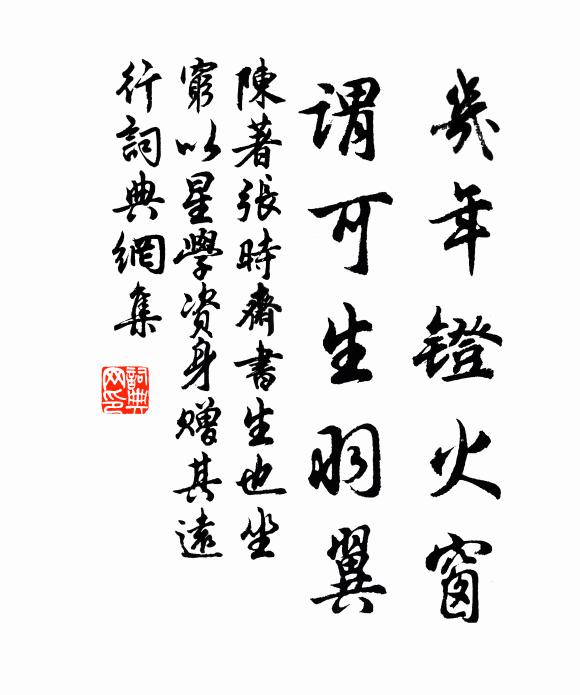 幾年鐙火窗
謂可生羽翼
陳著張時齋書生也坐
窮以星學資身贈其遠
行詞典網集
詞典網印